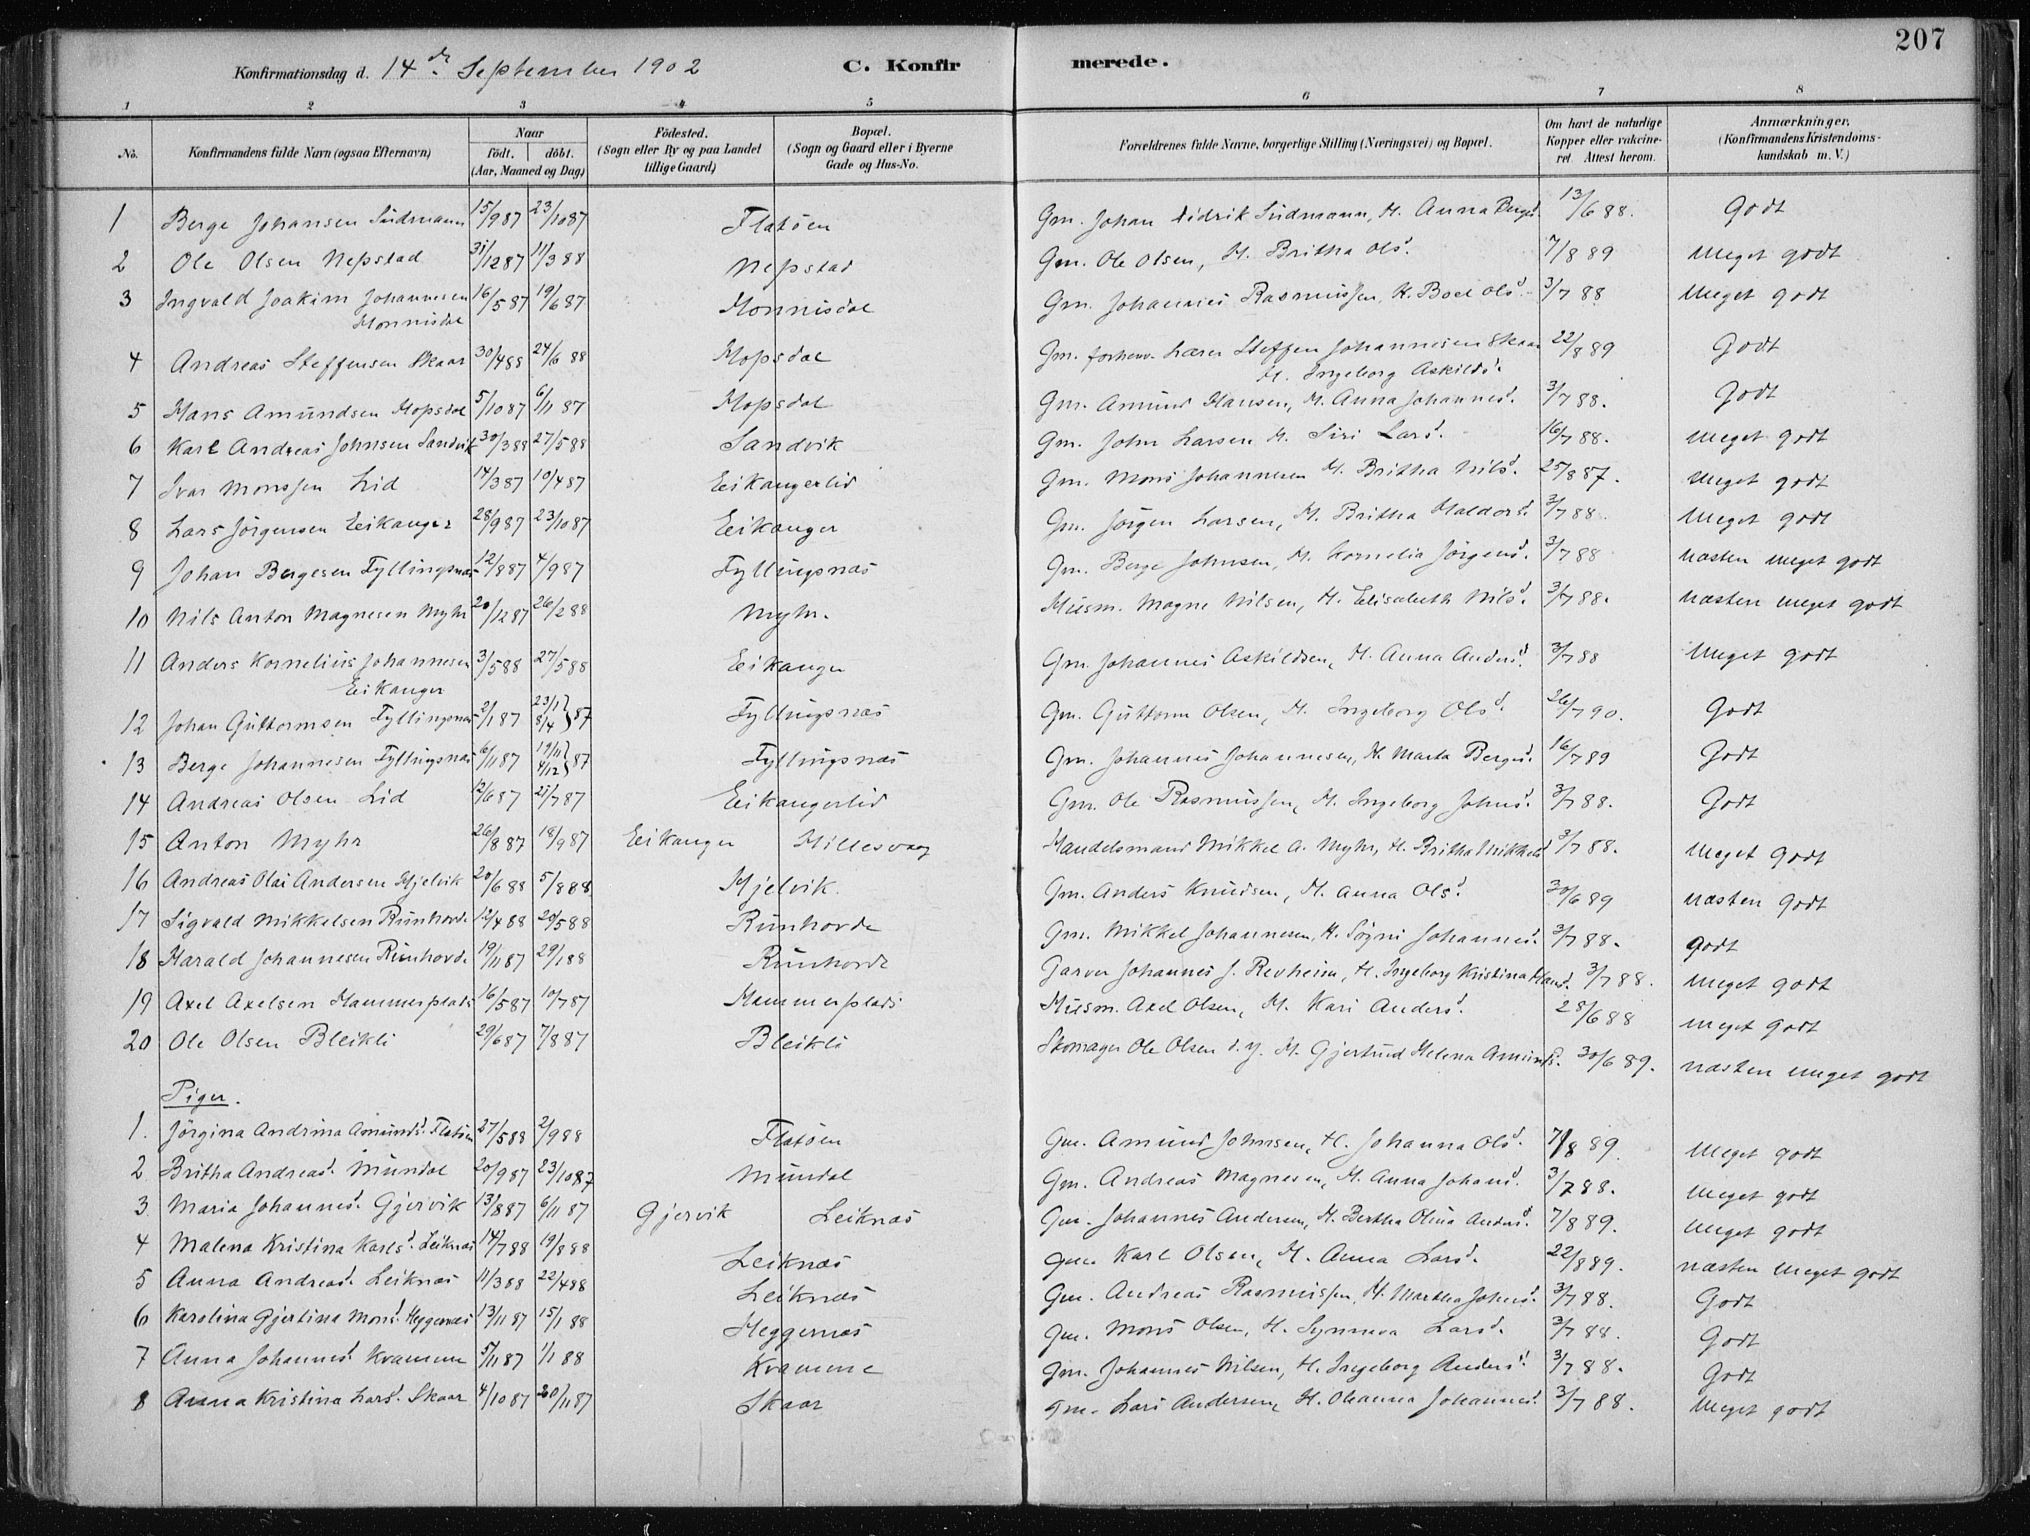 207
Konfirmationsdag d. 14de September 1902 C. Konfirmerede.
1 2 3 4 5 6 7 8
No. Konfirmandens fulde Navn (ogsaa Efternavn) Naar født. døbt. (Aar, Maaned og Dag) Fødested. (Sogn eller By og paa Landet tillige Gaard) Bopæl. (Sogn og Gaard eller i Byerne Gade og Hus-No. Forældrenes fulde Navne, borgerlige Stilling (Næringsvei) og Bopæl. Om havt de naturlige Kopper eller vakcineret Attest herom. Anmærkninger. (Konfirmandens Kristendomskundskab m. V.)
1 Berge Johansen Südmann 15/9 87 23/10 87 Flatøen Gm. Johan Didrik Südmann, H. Anna Bergesd. 13/6 88. Godt
2 Ole Olsen Nepstad 31/12 87 11/3 88 Nepstad Gm. Ole Olsen, H. Britha Olsd. 7/8 89 Meget godt
3 Ingvald Joakim Johannesen 16/5 87 19/6 87 Monnisdal Gm. Johannes Rasmussen, H. Boel Olsd. 3/7 88 Meget godt
Monnisdal
4 Andreas Steffensen Skaar 30/4 88 24/6 88 Hopsdal Gm. forhenv. Lærer Steffen Johannesen Skaar 22/8 89 Godt
H. Ingeborg Askildsd.
5 Hans Amundsen Hopsdal 5/10 87 6/11 87 Hopsdal Gm. Amund Hansen, H. Anna Johannesd. 3/7 88. Godt
6 Karl Andreas Johnsen Sandvik 30/3 88 27/5 88 Sandvik Gm. John Larsen H. Siri Larsd. 16/7 88. Meget godt
7 Ivar Monssen Lid 14/3 87 10/4 87 Eikangerlid Gm. Mons Johannesen H. Britha Nilsd. 25/8 87. Meget godt
8 Lars Jörgensen Eikanger 28/9 87 23/10 87 Eikanger Gm. Jörgen Larsen, H. Britha Haldorsd. 3/7 88. Meget godt
9 Johan Bergesen Fyllingsnæs 12/8 87 4/9 87 Fyllingsnæs Gm. Berge Johnsen, H. Kornelia Jörgensd. 3/7 88 næsten meget godt
10 Nils Anton Magnesen Myhr 20/12 87 26/2 88 Myhr. Husm. Magne Nilsen, H. Elisabeth Nilsd. 3/7 88. næsten meget godt
11 Anders Kornelius Johannesen 3/5 88 27/5 88 Eikanger Gm. Johannes Askildsen, H. Anna Andersd. 3/7 88 Meget godt
Eikanger
12 Johan Guttormsen Fyllingsnæs 2/1 87 23/1 8/4 } 87 Fyllingsnæs Gm. Guttorm Olsen, H. Ingeborg Olsd. 26/7 90. Godt
13 Berge Johannesen Fyllingsnæs 6/11 87 19/11 4/12 } 87 Fyllingsnæs Gm. Johannes Johannesen, H. Marta Bergesd. 16/7 89 Godt
14 Andreas Olsen Lid 12/6 87 21/7 87 Eikangerlid Gm. Ole Rasmussen, H. Ingeborg Johnsd. 3/7 88. Godt
15 Anton Myhr 26/8 87 18/9 87 Eikanger Hillesvaag Handelsmand Mikkel A. Myhr, H. Britha Mikkelsd 3/7 88. Meget godt
16 Andreas Olai Andersen Hjelvik 20/6 88 5/8 88 Hjelvik Gm. Anders Knudsen, H. Anna Olsd. 30/6 89 næsten godt
17 Sigvald Mikkelsen Runhovde 12/4 88 20/5 88 Runhovde Gm. Mikkel Johannesen, H. Søgni Johannesd. 3/7 88. godt
18 Harald Johannesen Runhovde 19/11 87 29/1 88 Runhovde Garver Johannes J. Revheim, H. Ingeborg Kristina Hansd. 3/7 88. Meget godt
19 Axel Axelsen Hammersplads 16/5 87 10/7 87 Hammersplads Husm. Axel Olsen, H. Kari Andersd. 28/6 88 meget godt
20 Ole Olsen Bleikli 29/6 87 7/8 87 Bleikli Skomager Ole Olsen d.y. H. Gjertrud Helena Amundsd. 30/6 89. næsten meget godt
Piger.
1. Jörgina Andrina Amundsd. Flatøen 27/5 88 2/9 88 Flatøen Gm. Amund Johnsen, H. Johanna Olsd. 7/8 89. Meget godt
2 Britha Andreasd. Mundal 20/9 87 23/10 87 Mundal Gm. Andreas Magnesen, H. Anna Johansd. 3/7 88. Meget godt
3 Maria Johannesd. Gjervik 13/8 87 6/11 87 Gjervik Leiknæs Gm. Johannes Andersen, H. Bertha Olina Andersd. 7/8 89. Meget godt
4 Malena Kristina Karlsd. Leiknæs 14/7 88 19/8 88 Leiknæs Gm. Karl Olsen, H. Anna Larsd. 22/8 89. næsten meget godt
5 Anna Andreasd. Leiknæs 11/3 88 22/4 88 Leiknæs Gm. Andreas Rasmussen, H. Martha Johnsd. 3/7 88. Godt
6 Karolina Gjertina Monsd. Heggernæs 13/11 87 15/1 88 Heggernæs Gm. Mons Olsen, H. Synneva Larsd. 3/7 88. Godt
7 Anna Johannesd. Kvamme 5/11 87 1/1 88 Kvamme Gm. Johannes Nilsen, H. Ingeborg Andersd. 3/7 88. Godt
8 Anna Kristina Larsd. Skaar 4/10 87 20/11 87 Skaar Gm. Lars Andersen, H. Oleanna Johannesd. 3/7 88. Meget godt